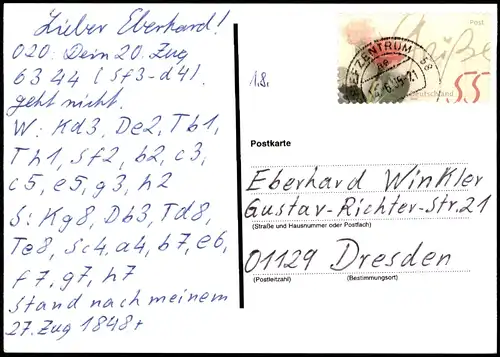 Lieber Eberhard!
020: Dein 20. Zug
6344 (Sf3-d4)
geht nicht.
W: Kd3, De2, Tb1,
Th1, Sf2, b2, c3,
c5, e5, g3, h2
S: Kg8, Db3, Td8,
Te8, Sc4, a4, b7, e6,
f7, g7, h7
Stand nach meinem
27. Zug 1848+
1.8.
Post
Grüße
Deutschland
55
FZENTRUM 58
Postkarte
Eberhard Winkler
Gustav-Richter-Str. 21
(Straße und Hausnummer oder Postfach)
01129 Dresden
(Postleitzahl) (Bestimmungsort)